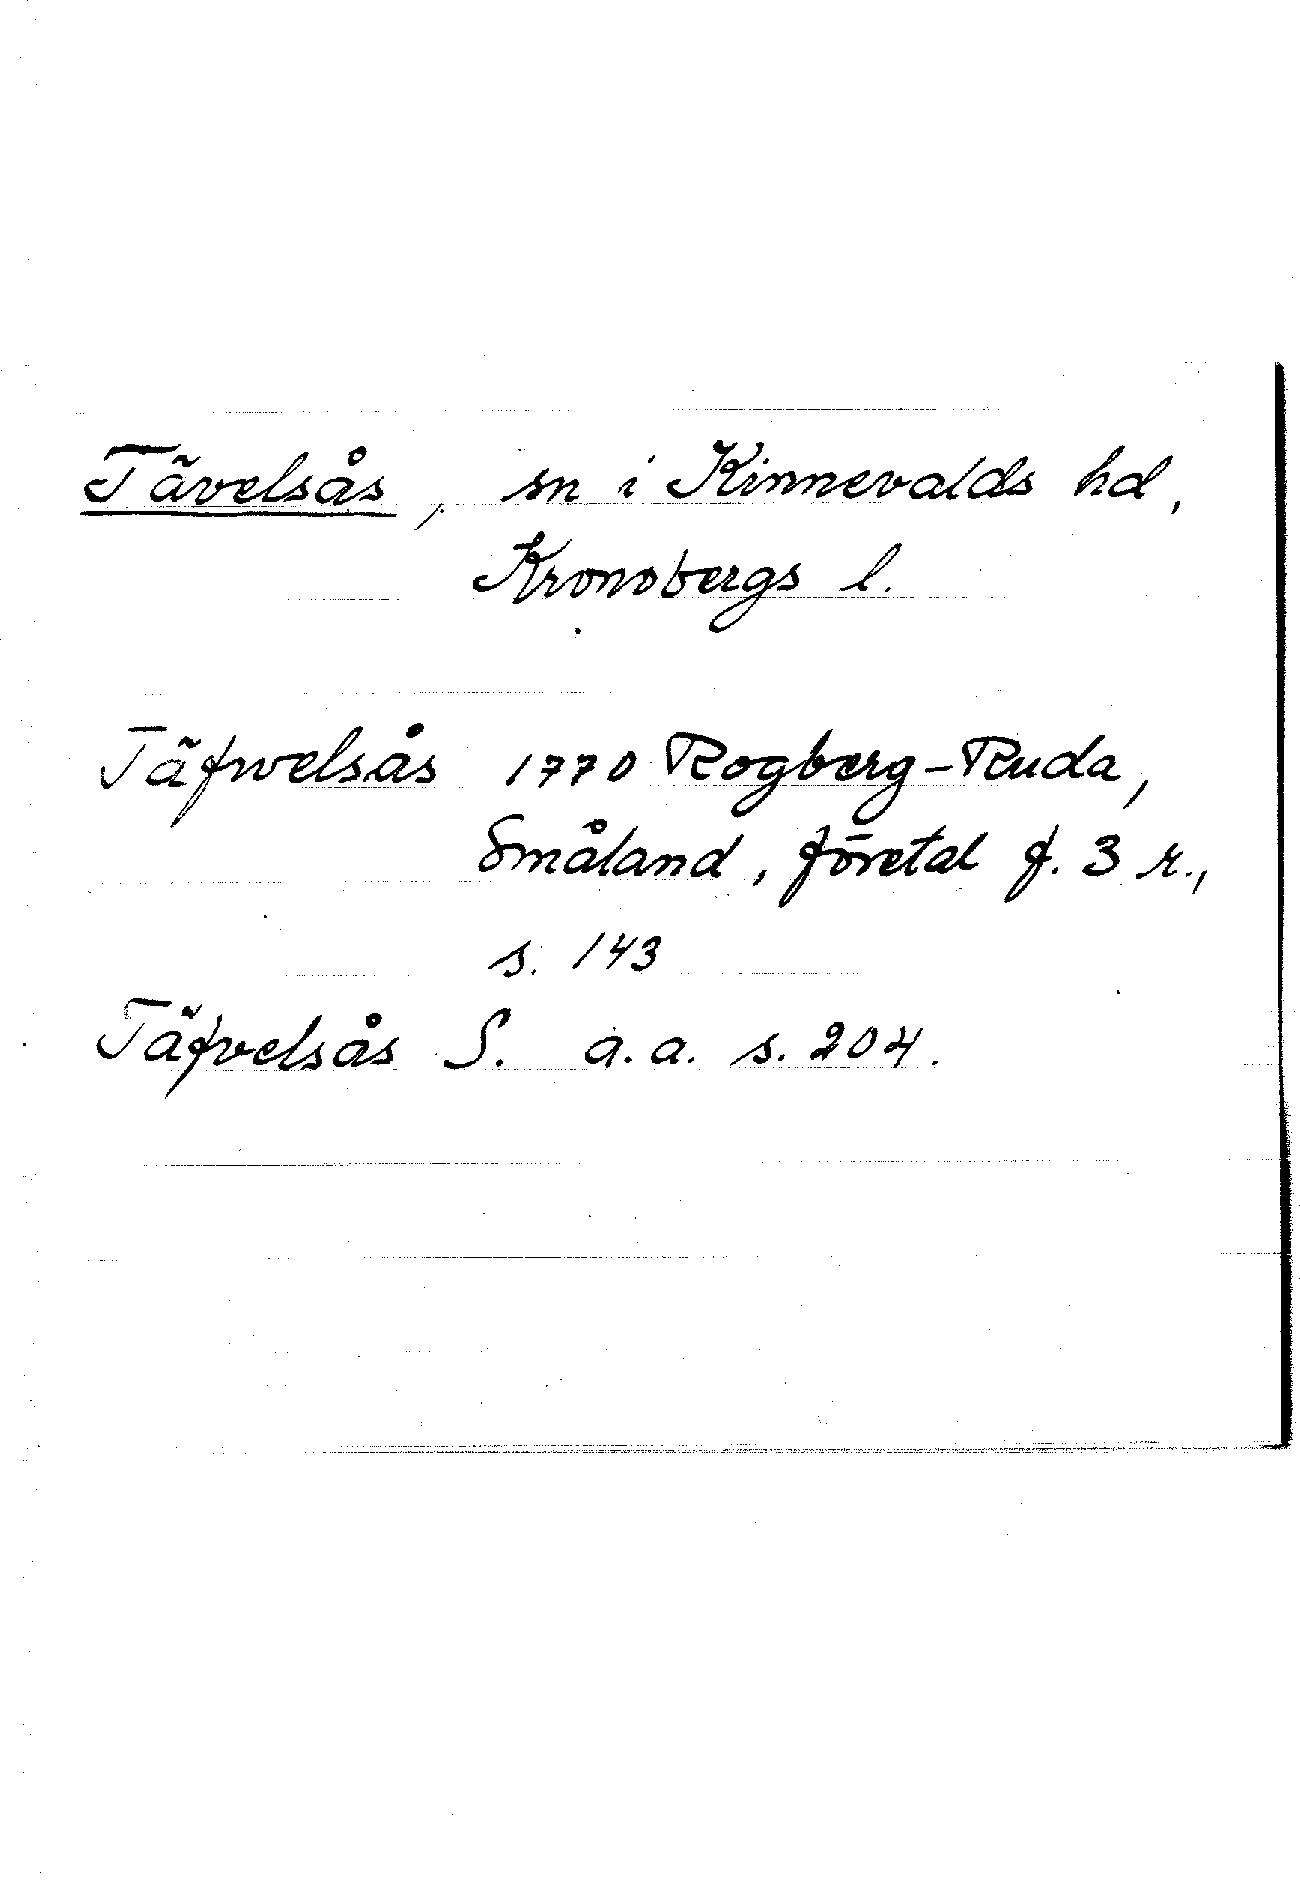 Tävelsås, sn i Kinnevalds hd,
Kronobergs l.
Täfwelsås 1770 Rogberg-Ruda,
Småland, företal f. 3 r.,
s. 143
Täfvelsås S. a.a. s. 204.